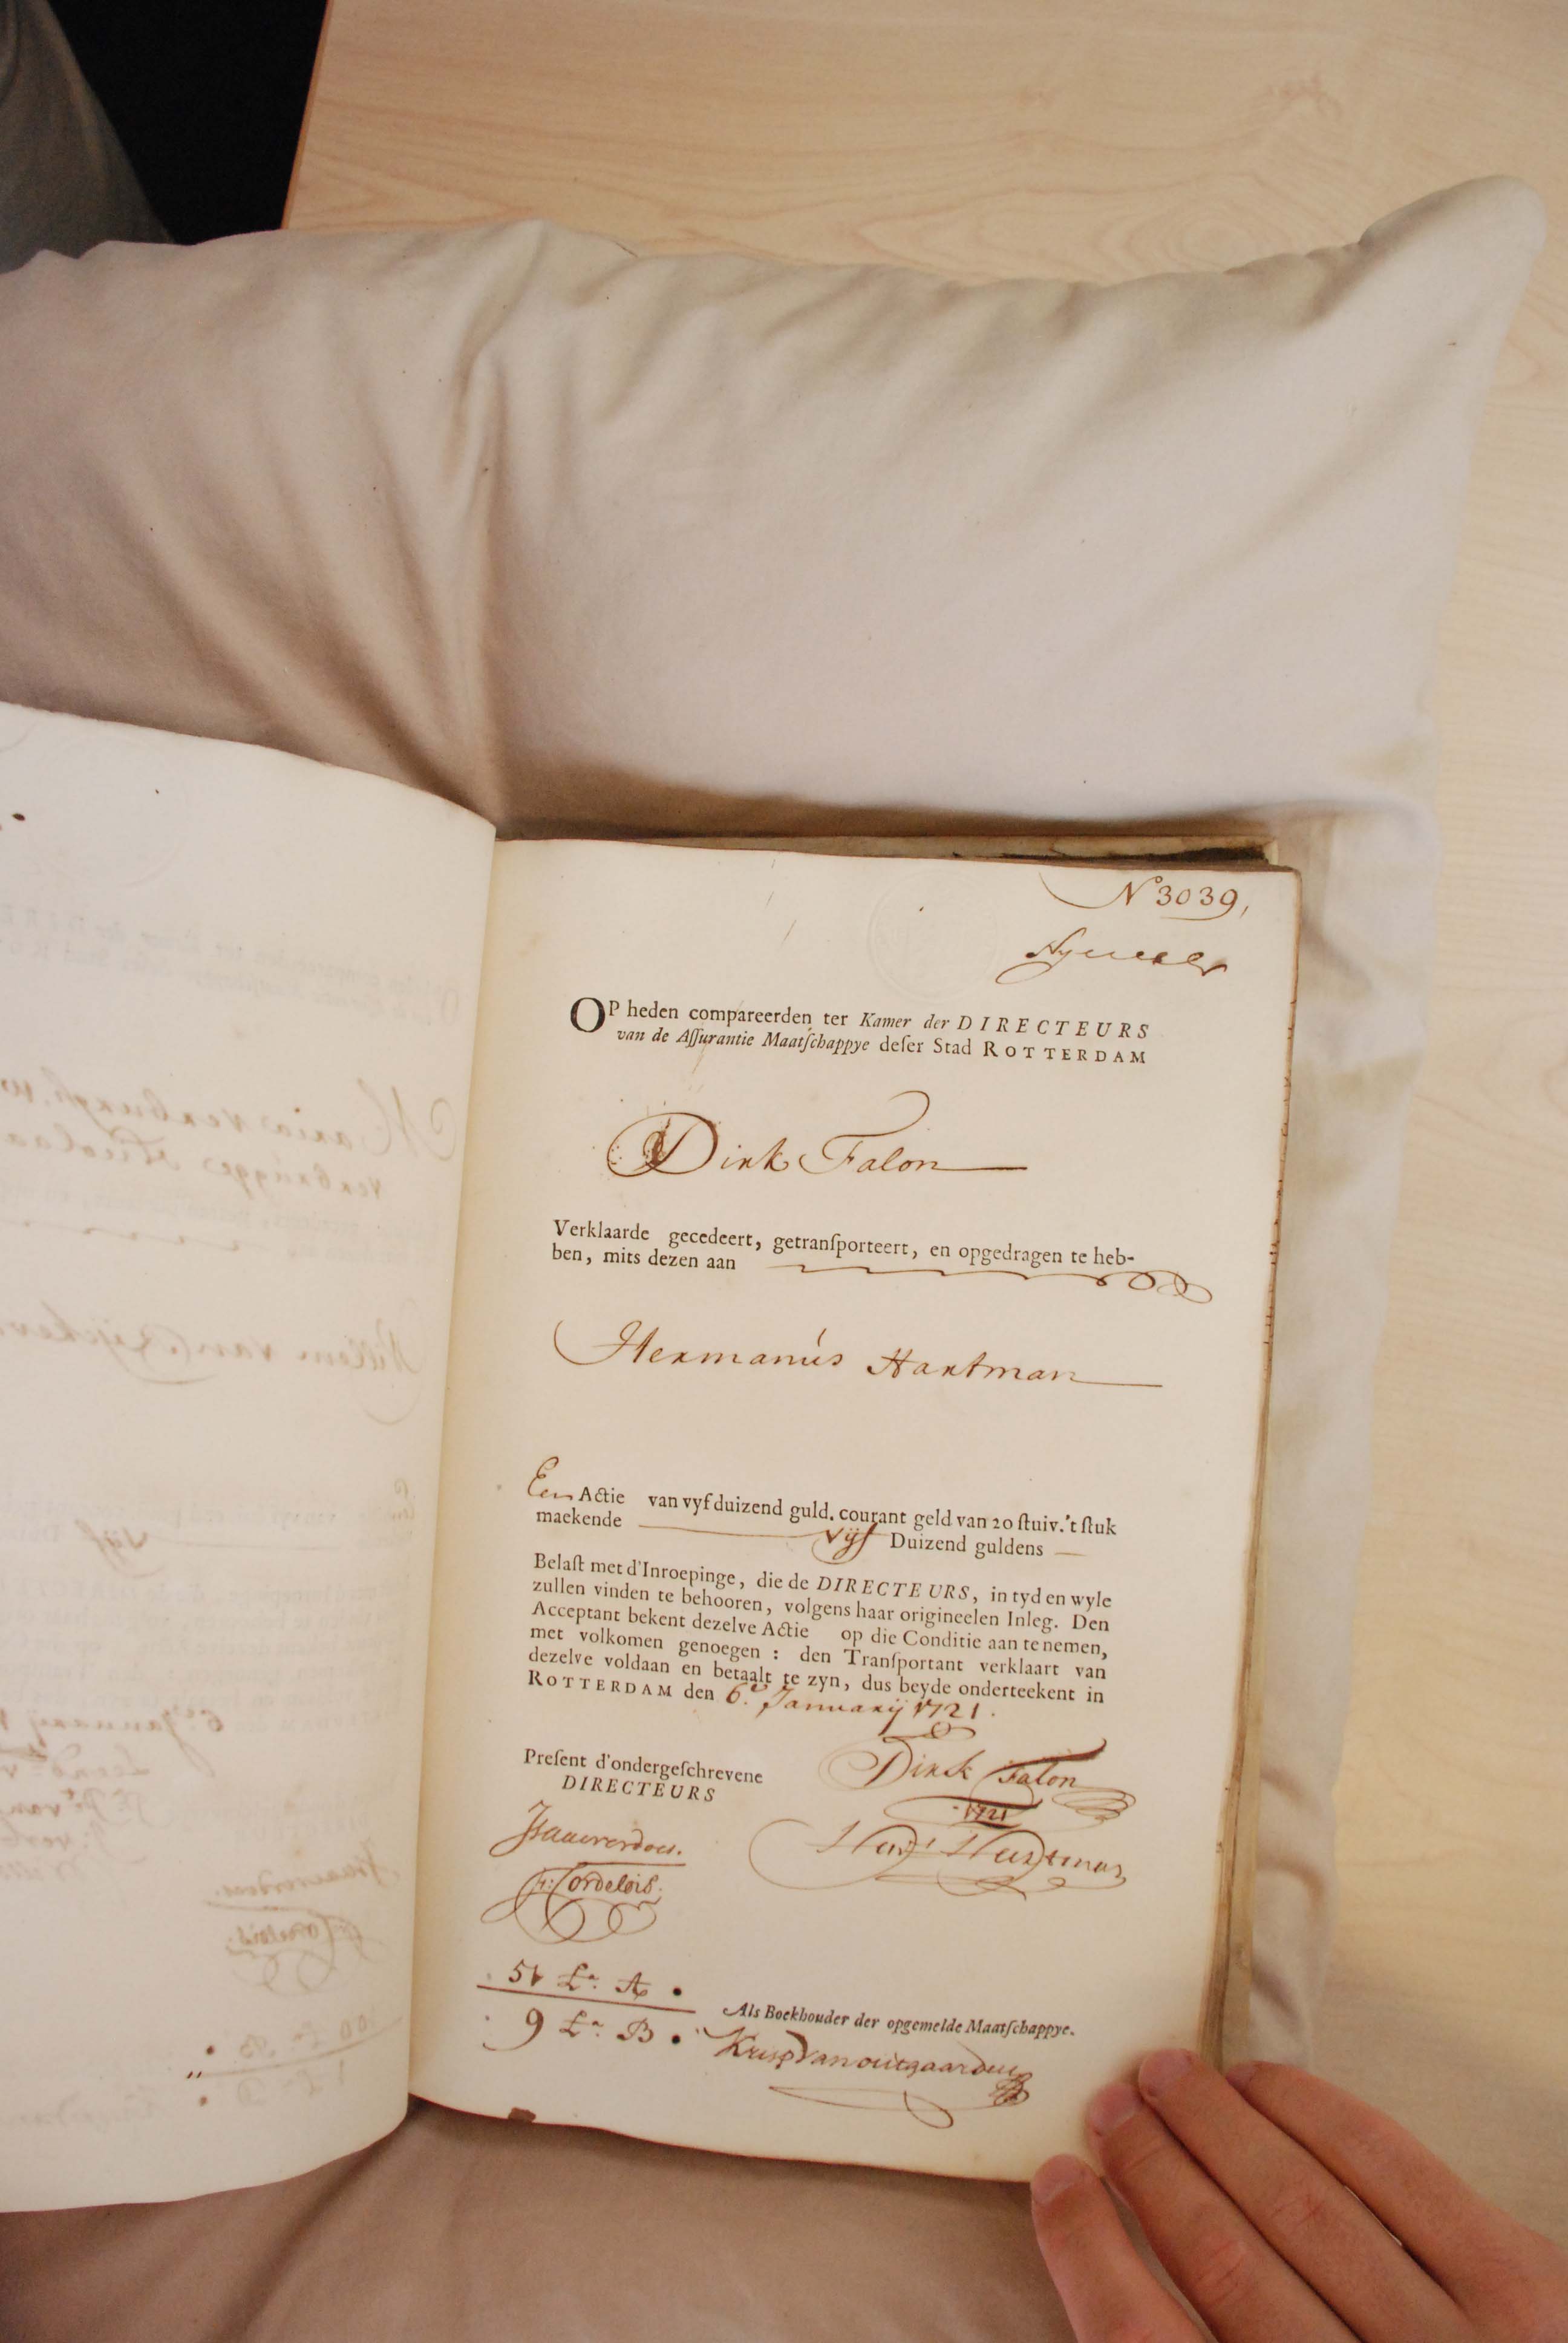 N 3039,
OP heden compareerden ter Kamer der DIRECTEURS
van de Aſſurantie Maatſchappye deſer Stad ROTTERDAM
Dirk Falon
Verklaarde gecedeert, getranſporteert, en opgedragen te heb-
ben, mits dezen aan
Hermanús Hartman
Een Actie van vyf duizend guld. courant geld van 20 ſtuiv. 't ſtuk
maekende vijf Duizend guldens
Belaſt met d'Inroepinge, die de DIRECTEURS, in tyd en wyle
zullen vinden te behooren, volgens haar origineelen Inleg. Den
Acceptant bekent dezelve Actie op die Conditie aan te nemen,
met volkomen genoegen : den Tranſportant verklaart van
dezelve voldaan en betaalt te zyn, dus beyde onderteekent in
ROTTERDAM den 6.e Januarij 1721.
Preſent d'ondergeſchrevene
DIRECTEURS
Dirk Falon
1721
F: Cordelois.
51 La. A
9 La. B
Als Boekhouder der opgemelde Maatſchappye.